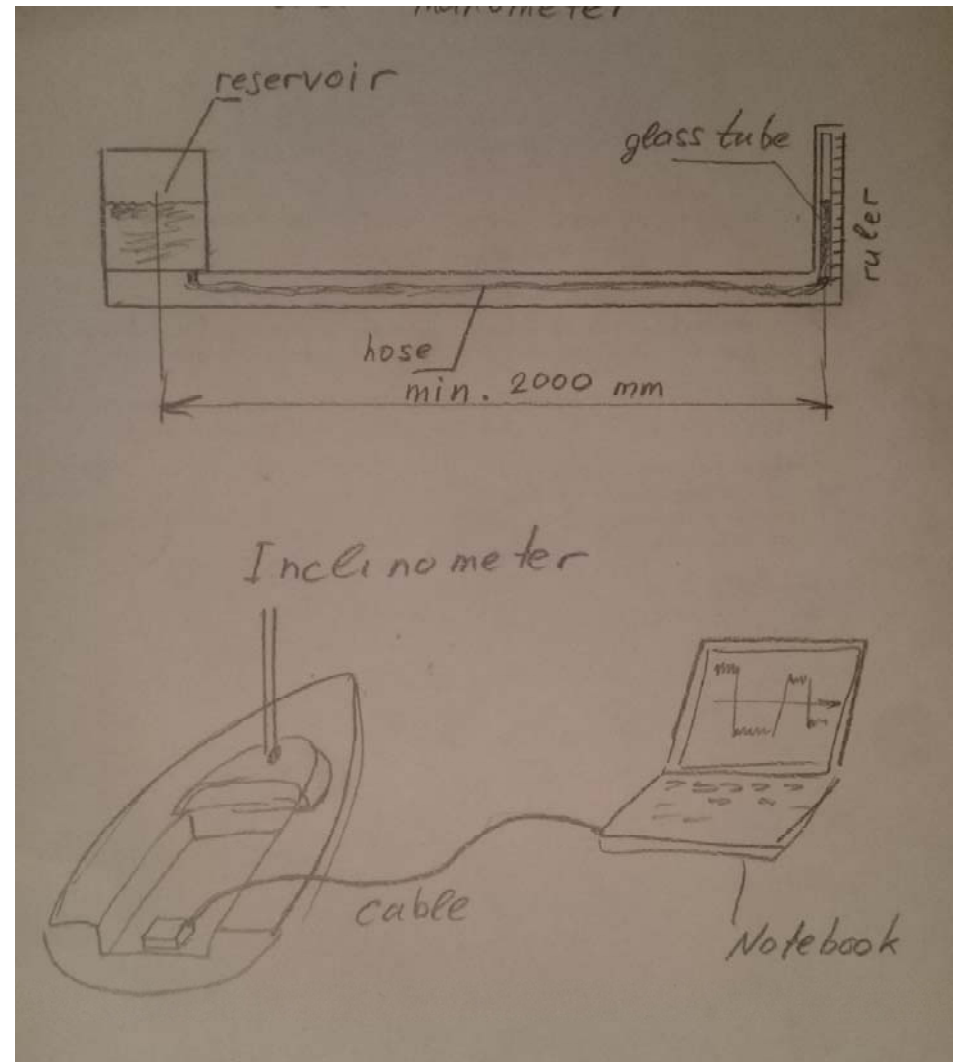 manometer
reservoir
glass tube
ruler
hose
min. 2000 mm
Inclinometer
cable
Notebook